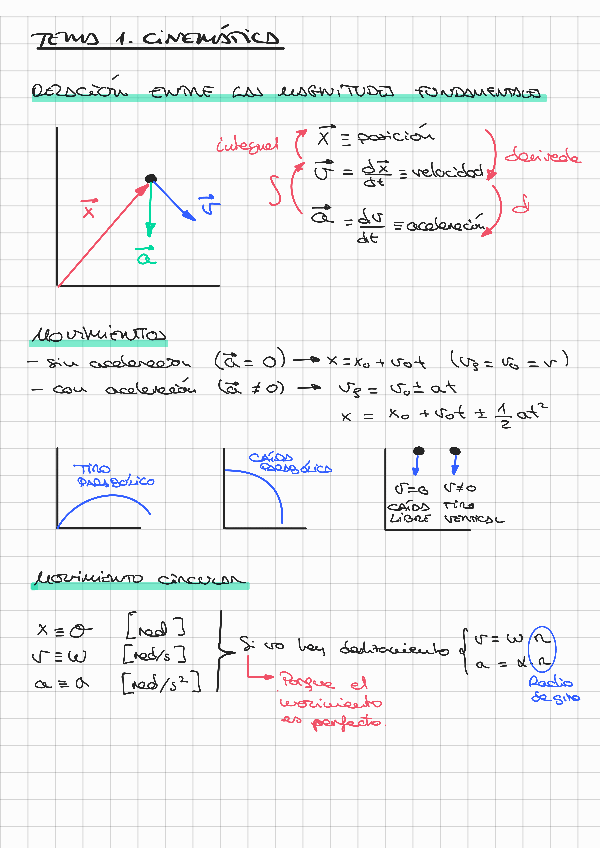 TEMA 1. CINEMÁTICA
RELACIÓN ENTRE LAS MAGNITUDES FUNDAMENTALES
integral
x⃗ ≡ posición
derivada
∫
v⃗ = dx⃗/dt ≡ velocidad
d
a⃗ = dv/dt ≡ aceleración
x⃗
v⃗
a⃗
MOVIMIENTOS
- sin aceleración (a⃗ = 0) → x = x₀ + v₀t (vf = v₀ = v)
- con aceleración (a⃗ ≠ 0) → vf = v₀ ± at
x = x₀ + v₀t ± 1/2 at²
TIRO
PARABÓLICO
CAÍDA
PARABÓLICA
v=0 v≠0
CAÍDA TIRO
LIBRE VERTICAL
MOVIMIENTO CIRCULAR
x ≡ θ [rad]
v ≡ ω [rad/s]
a ≡ α [rad/s²]
Si no hay deslizamiento
v = ω r
a = α r
Porque el
movimiento
es perfecto
Radio
de giro